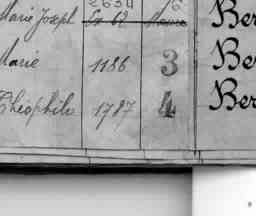 2634
Marie Joseph Ber
Marie 1186 3 Ber
Théophile 1787 4 Ber